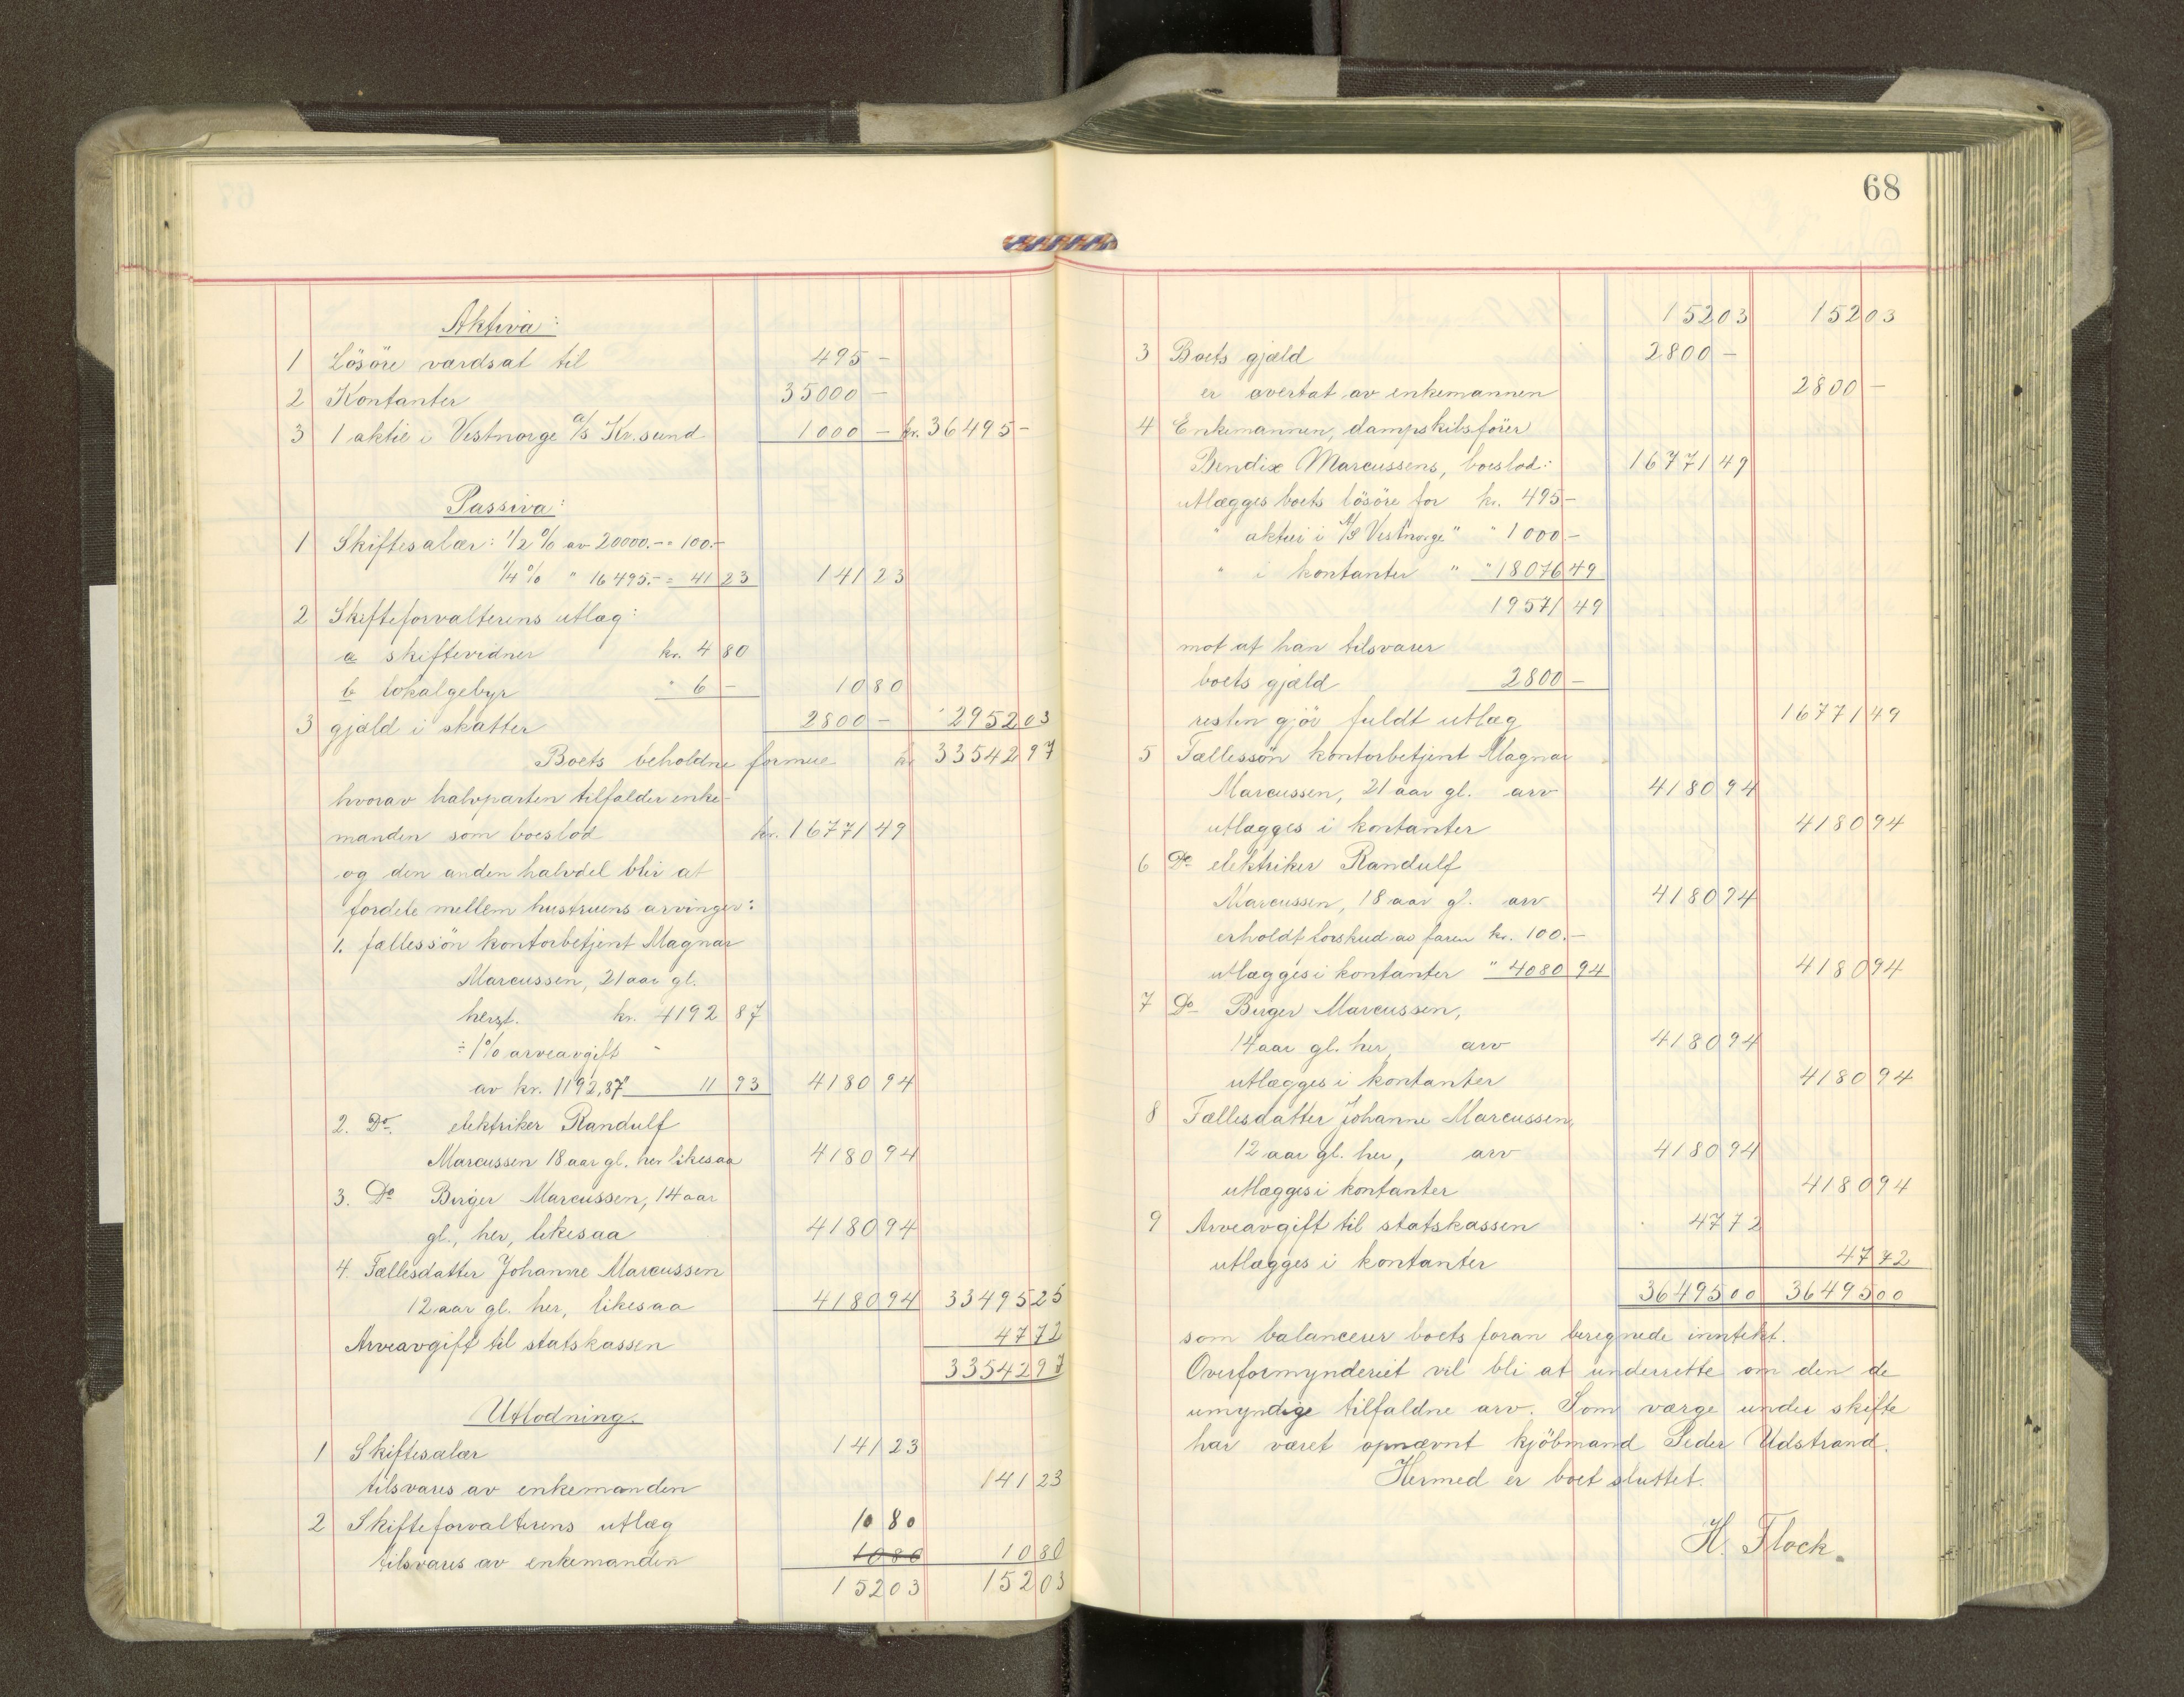 Aktiva:
1 Lösöre værdsat til 495 -
2 Kontanter 35000 -
3 1 aktie i Vestnorge a/s Kr.sund 1000 - kr. 36495 -
Passiva:
1 Skiftesalær: 1/2 % av 20000.- = 100.-
1/4 % " 16495.- = 41 23 141 23
2 Skifteforvalterens utlæg:
a skiftevidner kr. 4 80
b lokalgebyr " 6 - 10 80
3 gjæld i skatter 2800 - " 2952 03
Boets beholdne formue kr 33542 97
hvorav halvparten tilfalder enke-
manden som boeslod kr. 16771 49
og den anden halvdel blir at
fordele mellem hustruens arvinger:
1. fællessön kontorbetjent Magnar
Marcussen, 21 aar gl.
herst. kr. 4192 87
÷ 1% arveavgift "
av kr. 1192,87 11 93 4180 94
2. Do. elektriker Randulf
Marcussen 18 aar gl. her likesaa 4180 94
3. Do Birger Marcussen, 14 aar
gl., her, likesaa 4180 94
4. Fællesdatter Johanne Marcussen
12 aar gl. her, likesaa 4180 94 33495 25
Arveavgift til statskassen 47 72
33542 97
Utlodning.
1 Skiftesalær 141 23
tilsvares av enkemanden 141 23
2 Skifteforvalterens utlæg 10 80
tilsvares av enkemanden 10 80 10 80
152 03 152 03
68
152 03 152 03
3 Boets gjæld 2800 -
er overtat av enkemannen 2800 -
4 Enkemannen, dampskibsförer
Bendix Marcussens, boeslod: 16771 49
utlægges boets lösöre for kr. 495 -
" aktiei i A/S Vestnorge " " 1000 -
" i kontanter " " 18076 49
19571 49
mot at han tilsvarer
boets gjæld 2800 -
resten gjör fuldt utlæg 16771 49
5 Fællessön kontorbetjent Magnar
Marcussen, 21 aar gl. arv 4180 94
utlægges i kontanter 4180 94
6 Do elektriker Randulf
Marcussen, 18 aar gl. arv 4180 94
erholdt forskud av faren kr. 100.-
utlægges i kontanter " 4080 94 4180 94
7 Do Birger Marcussen,
14 aar gl. her, arv 4180 94
utlægges i kontanter 4180 94
8 Fællesdatter Johanne Marcussen,
12 aar gl. her, arv 4180 94
utlægges i kontanter 4180 94
9 Arveavgift til statskassen 47 72
utlægges i kontanter 47 72
36495 00 36495 00
som balancerer boets foran beregnede inntekt.
Overformynderiet vil bli at underrette om den de
umyndige tilfaldne arv. Som værge under skifte
har været opnævnt kjöbmand Peder Udstrand.
Hermed er boet sluttet.
H. Flock.